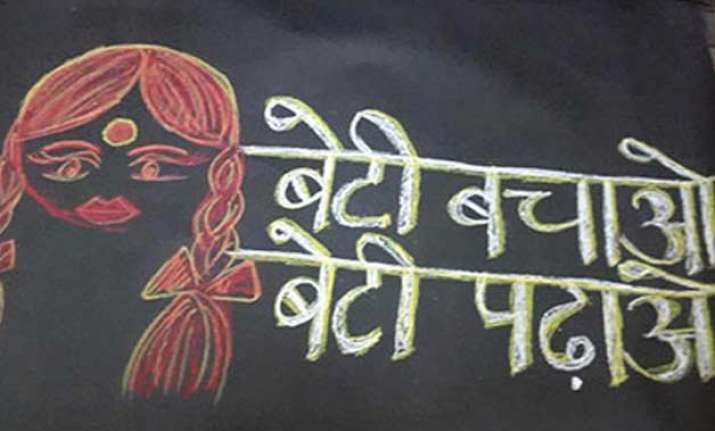 बेटी बचाओ
बेटी पढ़ाओ